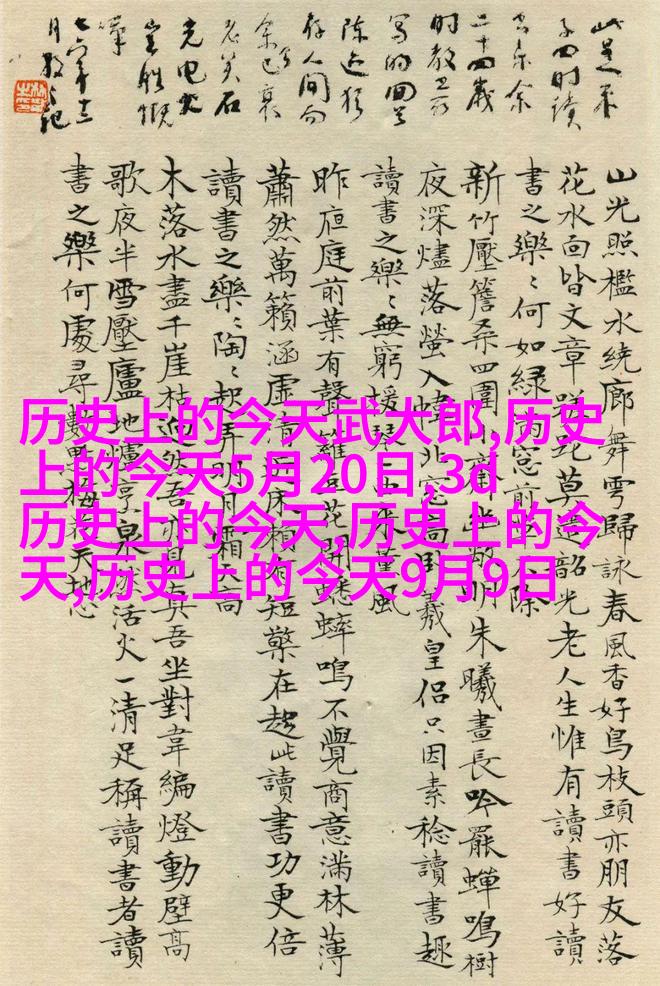 历史上的今天武大郎,历史
上的今天5月20日,3d
历史上的今天,历史上的今
天,历史上的今天9月9日
子四时读
二十四歲
存人间
山光照檻水繞廊舞雩歸詠春風香好鳥枝頭亦朋友落
花水面皆文章蹉跎莫遣韶光老人生惟有讀書好讀
書之樂〻何如綠滿窓前草不除
新竹壓簷桑四圍小齋幽敞明朱曦晝長吟罷蟬鳴樹
夜深燼落螢入幃北窓高卧羲皇侶只因素稔讀書趣
讀書之樂〻無窮援琴一曲來薰風
昨夜庭前葉有聲籬豆花開蟋蟀鳴不覺商意滿林薄
蕭然萬籟涵虛清近床賴有短檠在趁此讀書功更倍
讀書之樂〻陶〻起弄明月霜天高
木落水盡千崖枯迥然吾亦見真吾坐對韋編燈動壁高
歌夜半雪壓廬地爐烹活火一清足稱讀書者讀
書之樂何處尋數點梅花天地心